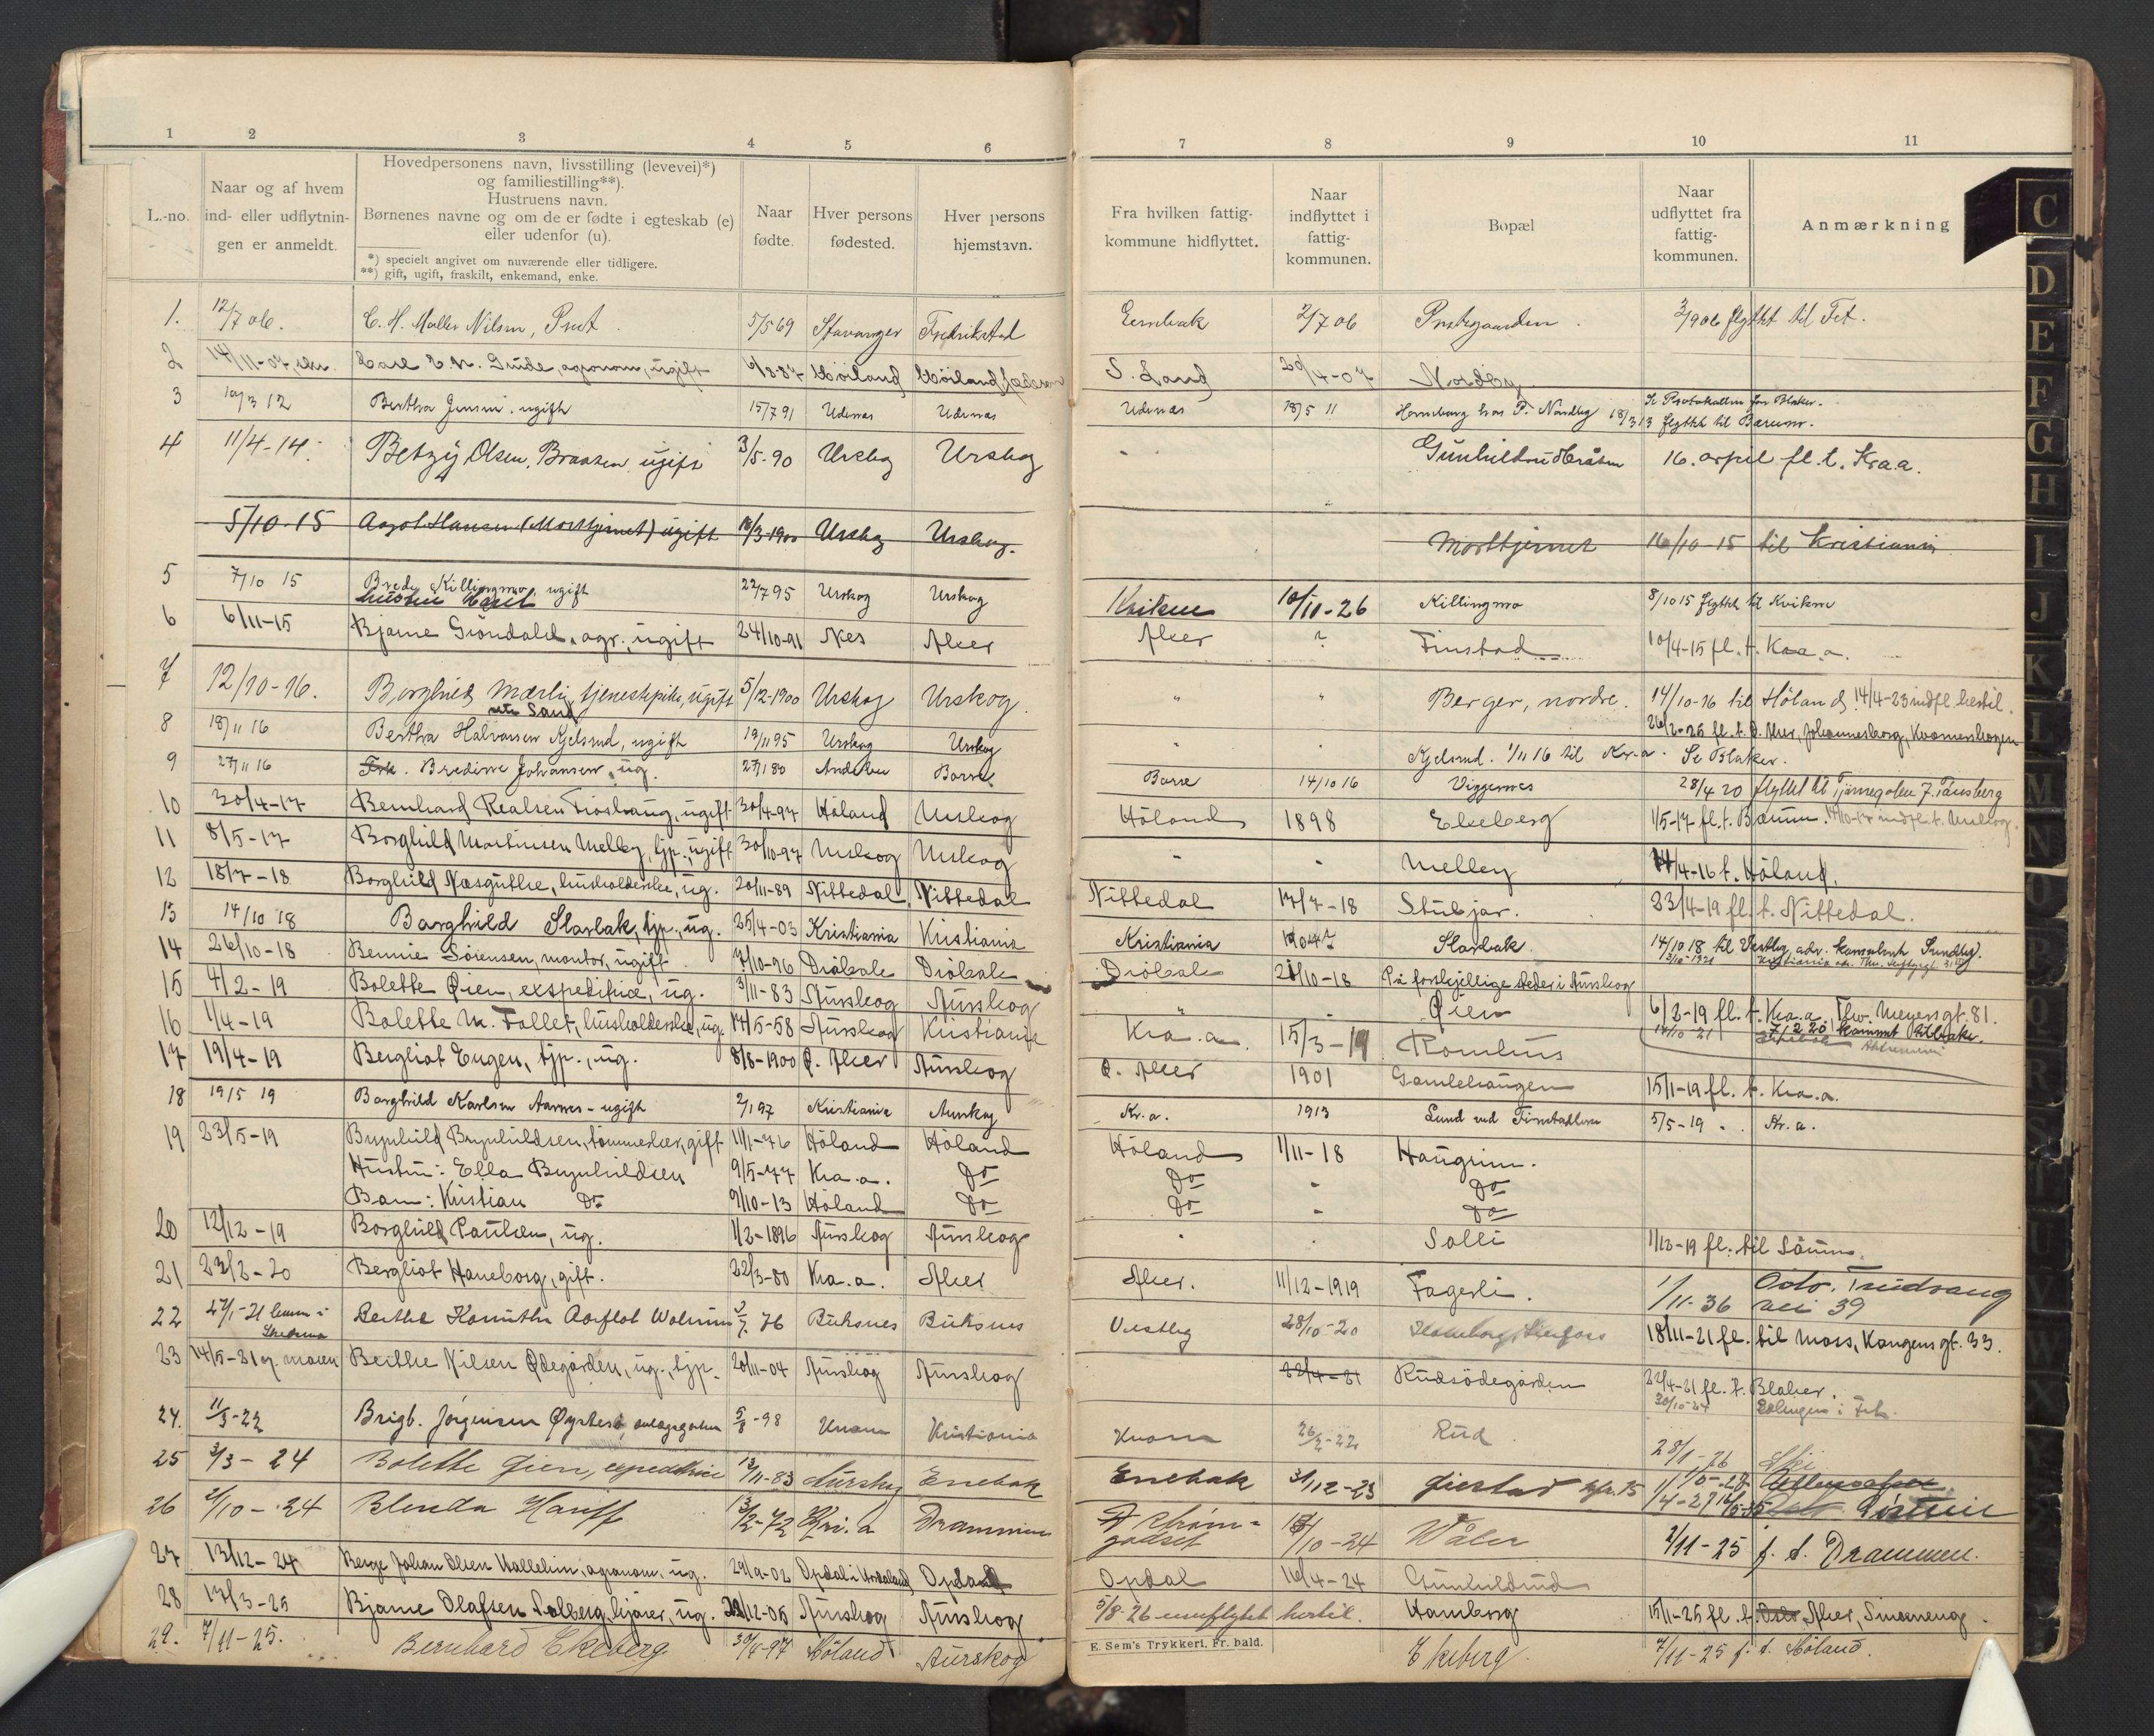 1 2 3 4 5 6 7 8 9 10 11
L.-no.
Naar og af hvem
ind- eller udflytnin-
gen er anmeldt.
Hovedpersonens navn, livsstilling (levevei)*)
og familiestilling**).
Hustruens navn.
Børnenes navne og om de er fødte i egteskab (e)
eller udenfor (u).
*) specielt angivet om nuværende eller tidligere.
**) gift, ugift, fraskilt, enkemand, enke.
Naar
fødte.
Hver persons
fødested.
Hver persons
hjemstavn.
Fra hvilken fattig-
kommune hidflyttet.
Naar
indflyttet i
fattig-
kommunen.
Bopæl
Naar
udflyttet fra
fattig-
kommunen.
Anmærkning
1. 12/7 06. C. H. Møller Nilsen, Prest 5/5 69 Stavanger Fredrikstad Enebak 2/7 06 Prestegaarden. 3/9 06 flyttet til Fet.
2 14/11-07 Carl Gude, agronom, ugift 6/8-87 Höiland Höiland S. Land 20/4-07 Nordby
3 10/3 12 Bertha Jensen, ugift 15/7 91 Udenes Udenes Udenes 18/5 11 Haneborg hos P. Nordby 18/3 13 flyttet til Bærum. Se Protokollen for Blaker.
4 11/4-14. Betzy Olsen, Braaten, ugift 3/5-90 Urskog Urskog " Gunhildrudbråten 16. april fl. t. Kra.a.
5/10-15 Aagot Hansen (Morttjernet) ugift 18/3-1900 Urskog Urskog. Morttjernet 16/10-15 til Kristiania
5 7/10 15 Brede Killingmo, ugift 22/7 95 Urskog Urskog Kviken 10/11-26 Killingmo 8/10 15 flyttet til Kvikne
6 6/11-15 Bjarne Gröndahl, agr., ugift 24/10-91 Nes Aker Aker ? Finstad 10/4-15 fl. t. Kra.a.
7 12/10-16. Borghild Mærli, tjenestepike, ugift 5/12-1900 Urskog Urskog. " " Berger, nordre. 14/10-16 til Höland 14/4-23 indfl. hertil.
Sand
8 18/11 16 Bertha Halvorsen Kjelsrud, ugift 19/11 95 Urskog Urskog " Kjelsrud. 1/11 16 til Kr.a. Se Blaker.
9 27/11 16 Frk. Bredine Johansen, ug. 27/1 80 Andebu Borre Borre 14/10 16 Viggernes 28/4 20 flyttet til Tönsberg
10 30/4-17 Bernhard Realsen ugift 30/4-97 Höland Urskog Höland 1898 Ekeberg 1/5-17 fl. t. Bærum.
11 8/5-17 Borghild Martinsen Melby, tjp., ugift 30/10-97 Urskog Urskog " " Melby 14/4-16 t. Höland.
12 18/7-18 Borghild Næsguthe, husholderske, ug. 20/11-89 Nittedal Nittedal Nittedal 17/7-18 Stubjar. 23/4-19 fl. t. Nittedal.
13 14/10 18 Borghild Slorbak, tjp., ug. 25/4-03 Kristiania Kristiania Kristiania Slorbak. 14/10 18 til Vestby
14 26/10-18 Bennie Sörensen, montør, ugift 7/10-96 Dröbak Dröbak Dröbak 21/10-18 På forskjellige steder i Aurskog
15 4/2-19 Bolette Øien, ekspeditrice, ug. 3/11-83 Aurskog Aurskog " - Øien 6/2-19 fl. t. Kra.a. Thv. Meyersgt. 81.
7/2 20 kommet tilbake.
16 1/4-19 Bolette M. Follet, husholderske, ug. 14/5-58 Aurskog Kristiania Kra.a. 15/3-19 Romhus
17 19/4-19 Bergliot Engen, tjp., ug. 8/8-1900 Ø. Aker Aurskog Ø. Aker 1901 Gamlehaugen 15/1-19 fl. t. Kra.a.
18 19/5 19 Borghild Karlsen Aarnes - ugift 2/1 97 Kristiania Aurskog Kr. a. 1913 Lund ved Finstadbru 5/5-19 Kr. a.
19 23/5-19 Brynhild Brynhildsen, tömmerkr., gift 11/1-76 Höland Höland Höland 1/11-18 Haugrim.
Hustru: Ella Brynhildsen 9/5-77 Kra.a. Do Do - Do
Barn: Kristian Do 9/10-13 Höland Do Do - Do
20 12/12-19 Borghild Paulsen, ug. 1/2-1896 Aurskog Aurskog " " Solli 1/12-19 fl. til Sörum.
21 23/2-20 Bergliot Haneborg, gift. 22/3-80 Kra.a. Aker Aker. 11/12-1919 Fagerli. 1/11-36 Oslo. Trudvang vei 39
22 Berthe 76 Buksnes Buksnes Vestby 28/10-20 18/11-21 fl. til Moss, Kongensgt. 33.
23 14/5-21 Berthe Nilsen Ødegården, ug., tjp. 20/11-04 Aurskog Aurskog 22/4-21 Rudsödegården 22/4-21 fl. t. Blaker.
24. 11/3-22 Brigt. Jörgensen 5/8-98 Kristiania 26/2-22 Rud 28/1-26 Ski
25 3/3-24 Bolette Øien, expeditrice 13/11-83 Aurskog Enebak Enebak 31/12-23
26 2/10-24 Blenda Hauff 13/2-72 Kri.a Drammen Strömgodset 18/10-24 Våler 2/11-25 f. t. Drammen.
27 13/12-24 Berge Johan Olsen agronom, ug. 29/9-02 Opdal i Hordaland Opdal Opdal 16/4-24 Gunhildrud
28 17/3-25 Bjarne Olafsen Solberg, ug. 21/12-05 Aurskog Aurskog 5/8-26 hertil. Hamborg 15/1-25 fl. t. Oslo Aker, Smørenge.
29. 7/11-25. Bernhard Ekeberg. 30/4-97 Höland Aurskog Ekeberg. 7/11-25 f. t. Höland.
E. Sem's Trykkeri, Fr. hald.
C
D
E
F
G
H
I
J
K
L
M
N
O
P
Q
R
S
T
U
V
W
X